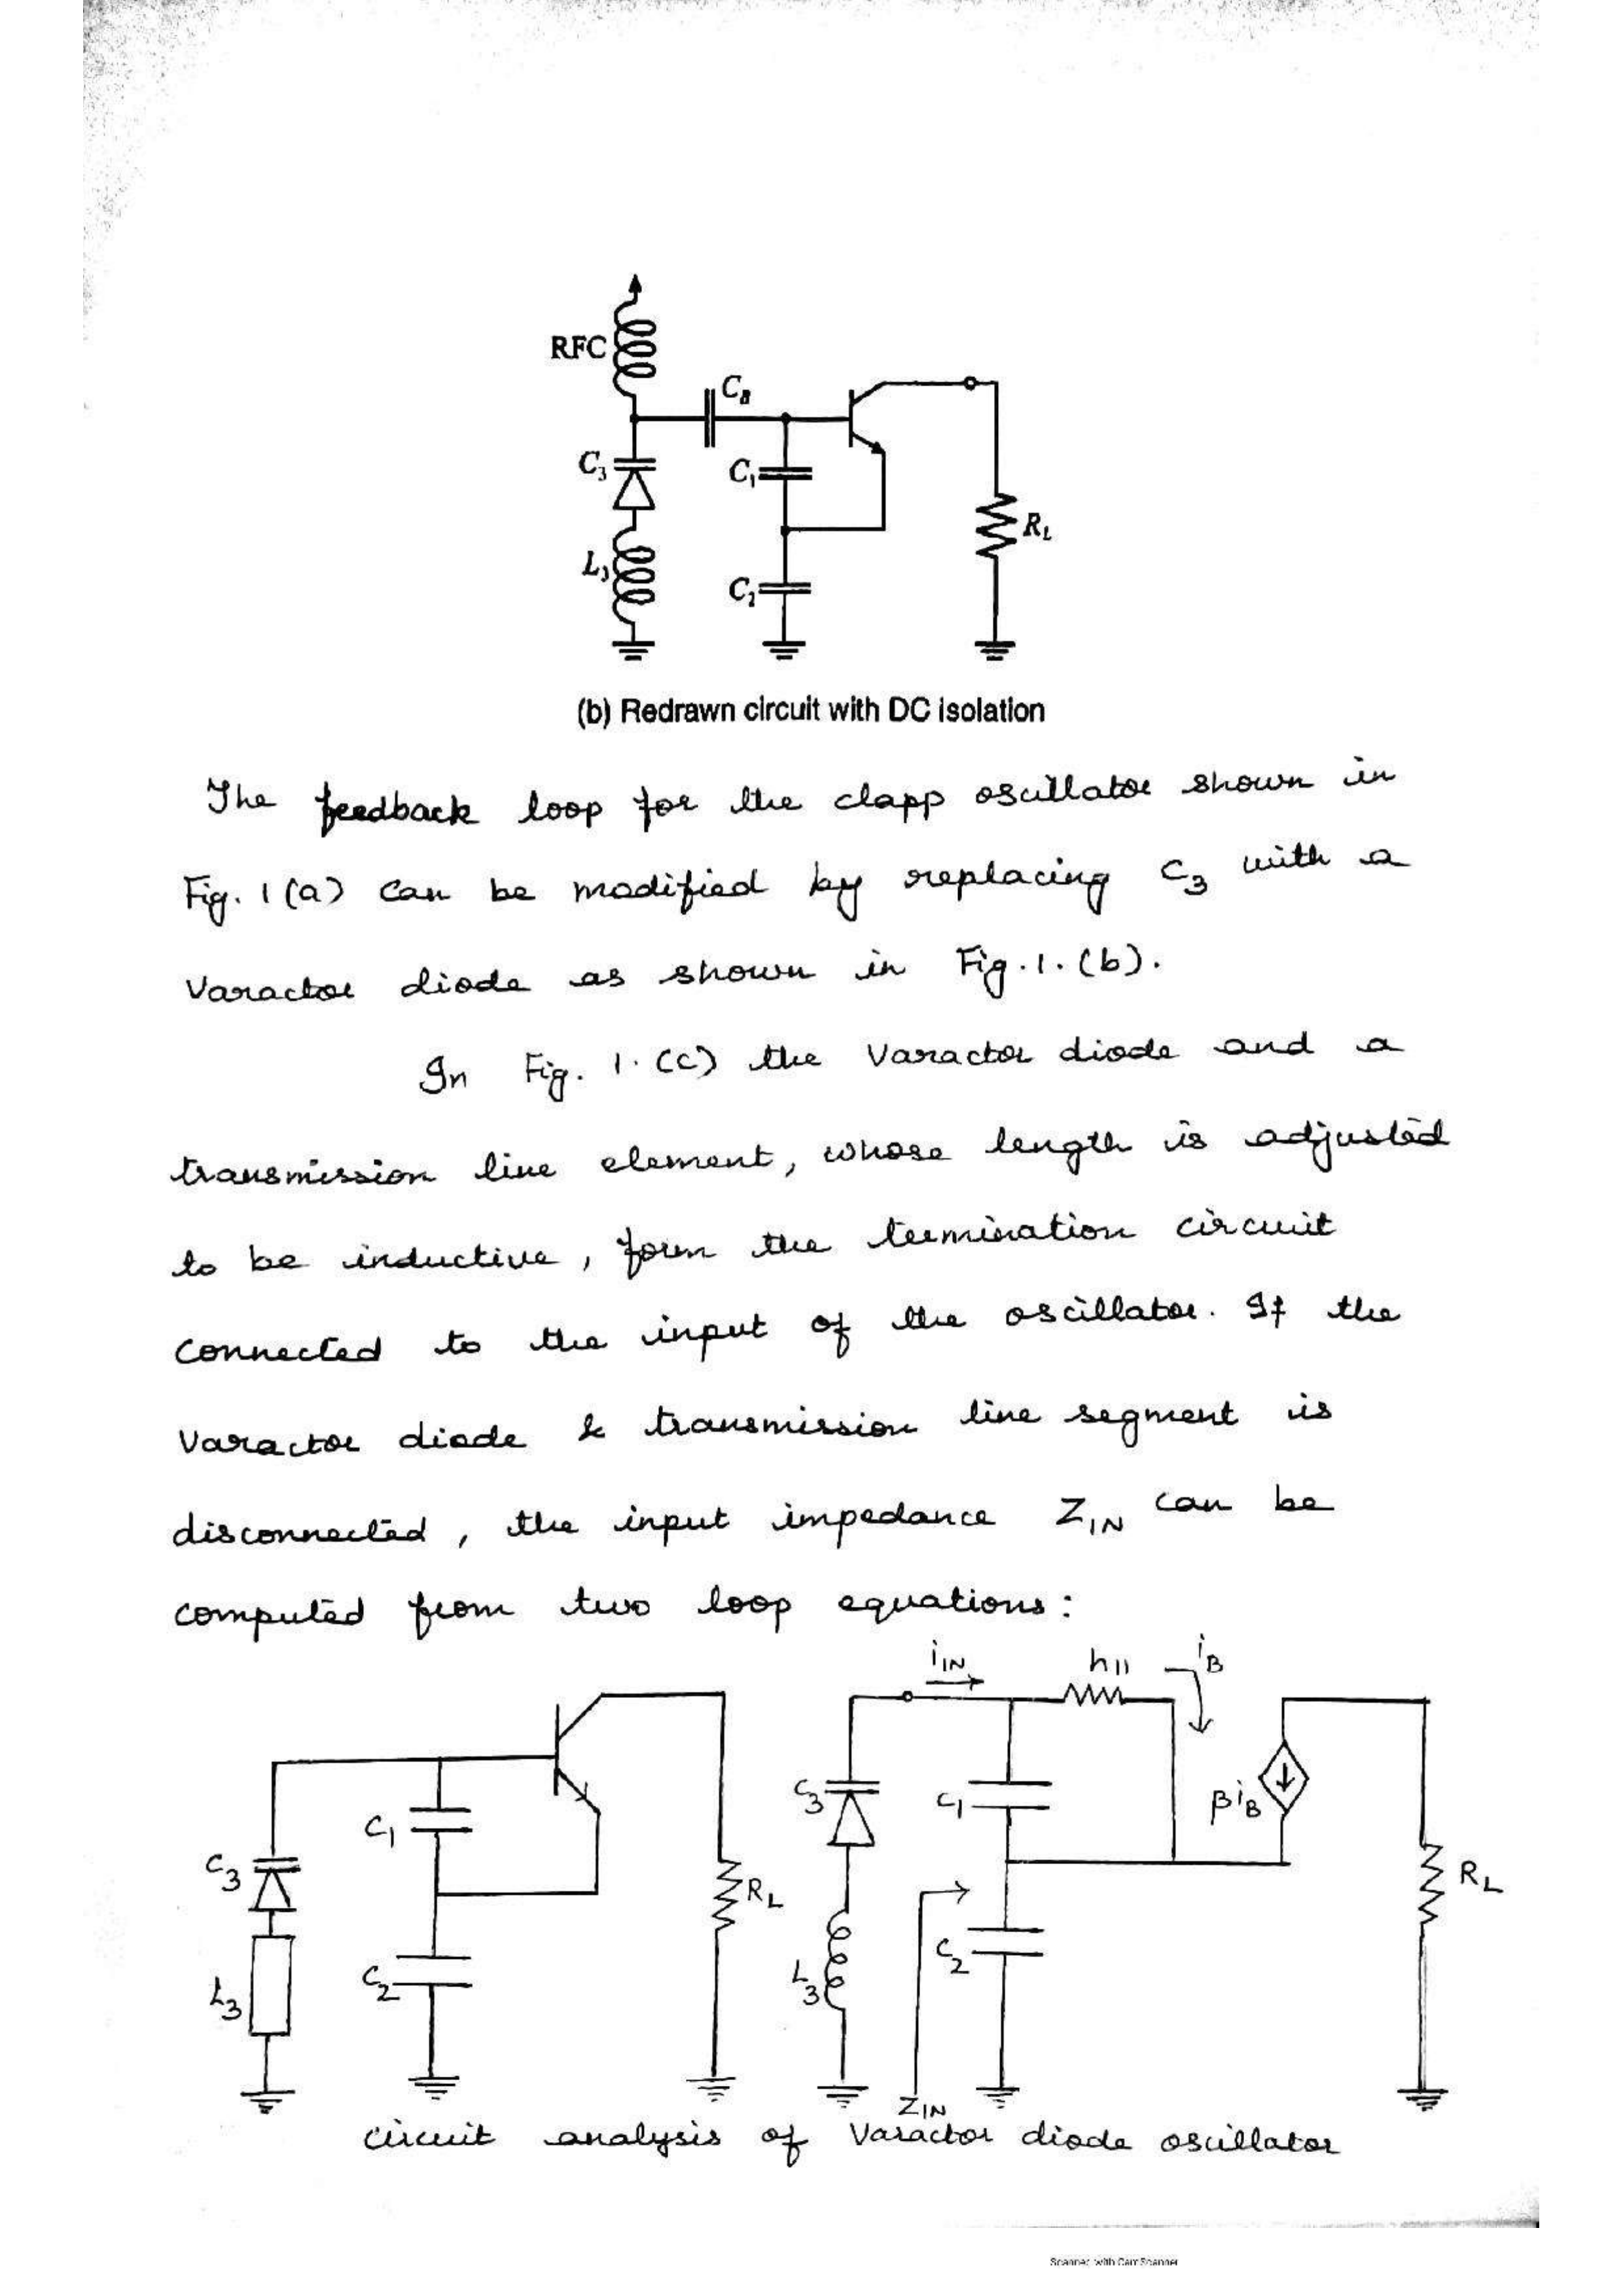 RFC
C_B
C_3
C_1
L_3
R_L
C_2
(b) Redrawn circuit with DC isolation
The feedback loop for the clapp oscillator shown in
Fig. 1 (a) can be modified by replacing C_3 with a
Varactor diode as shown in Fig. 1. (b).
In Fig. 1. (c) the Varactor diode and a
transmission line element, whose length is adjusted
to be inductive, form the termination circuit
connected to the input of the oscillator. If the
Varactor diode & transmission line segment is
disconnected, the input impedance Z_IN can be
computed from two loop equations:
i_IN
h_11
i_B
C_1
C_3
C_3
C_1
βi_B
R_L
R_L
L_3
C_2
L_3
C_2
Z_IN
circuit analysis of Varactor diode oscillator
Scanned with CamScanner